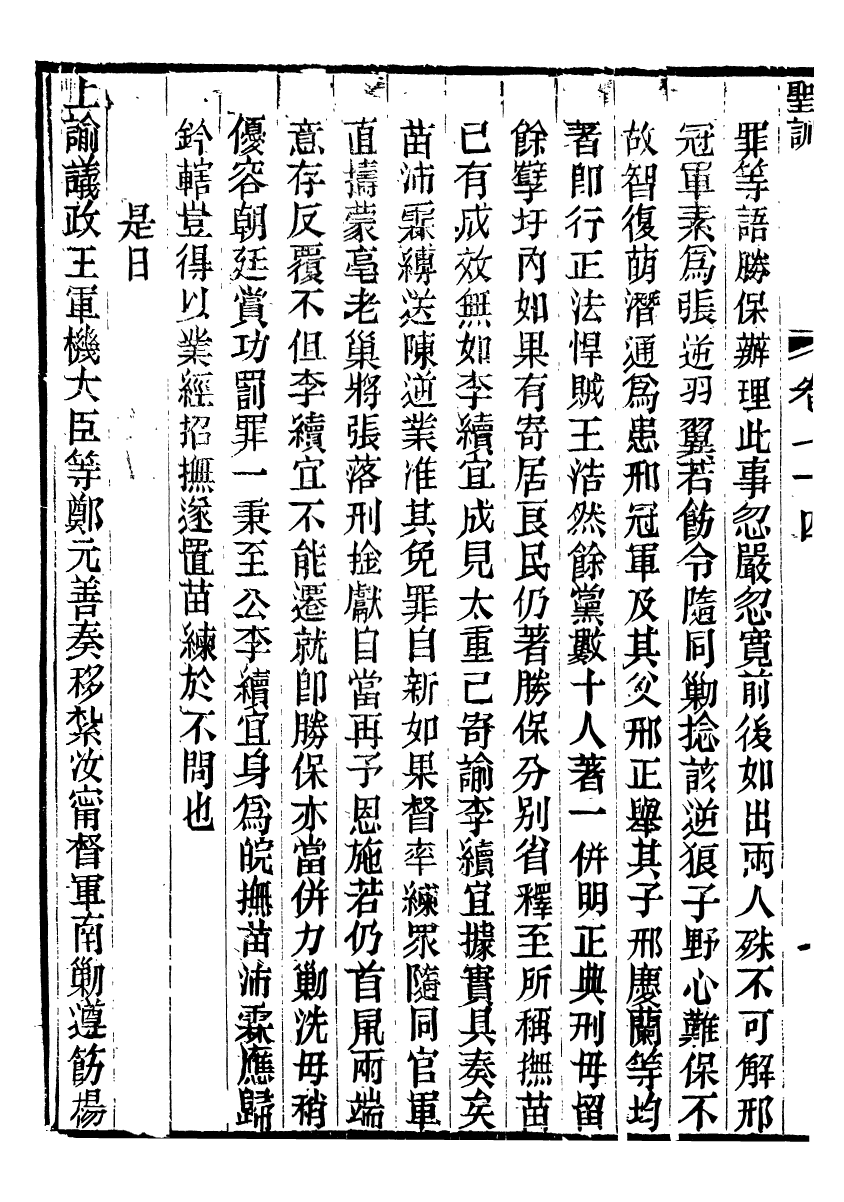 聖訓 卷一十四 一
罪等語勝保辦理此事忽嚴忽寬前後如出兩人殊不可解邢
冠軍素爲張逆羽翼若飭令隨同勦捻該逆狼子野心難保不
故智復萌潛通爲患邢冠軍及其父邢正舉其子邢慶蘭等均
著即行正法悍賊王浩然餘黨數十人著一併明正典刑毋留
餘孽圩內如果有寄居良民仍著勝保分別省釋至所稱撫苗
已有成效無如李續宜成見太重已寄諭李續宜據實具奏矣
苗沛霖縛送陳逆業准其免罪自新如果督率練眾隨同官軍
直擣蒙亳老巢將張落刑擒獻自當再予恩施若仍首鼠兩端
意存反覆不但李續宜不能遷就卽勝保亦當併力勦洗毋稍
優容朝廷賞功罰罪一秉至公李續宜身爲皖撫苗沛霖應歸
鈐轄豈得以業經招撫遂置苗練於不問也
是日
上諭議政王軍機大臣等鄭元善奏移紮汝甯督軍南勦遵飭楊